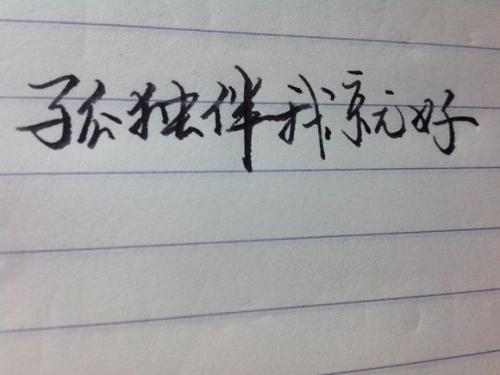 孤独伴我就好